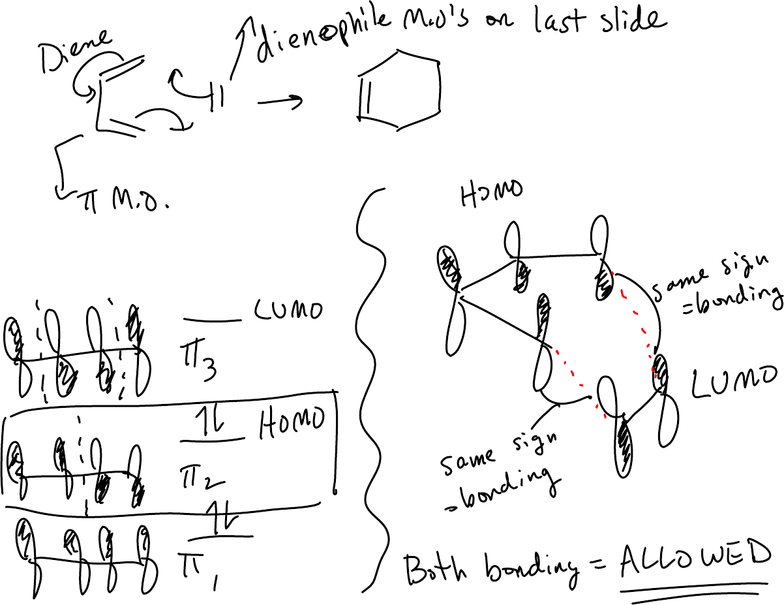 dienophile M.O's on last slide
Diene
π M.O.
HOMO
same sign
=bonding
LUMO
π3
LUMO
HOMO
π2
same sign
=bonding
π1
Both bonding = ALLOWED